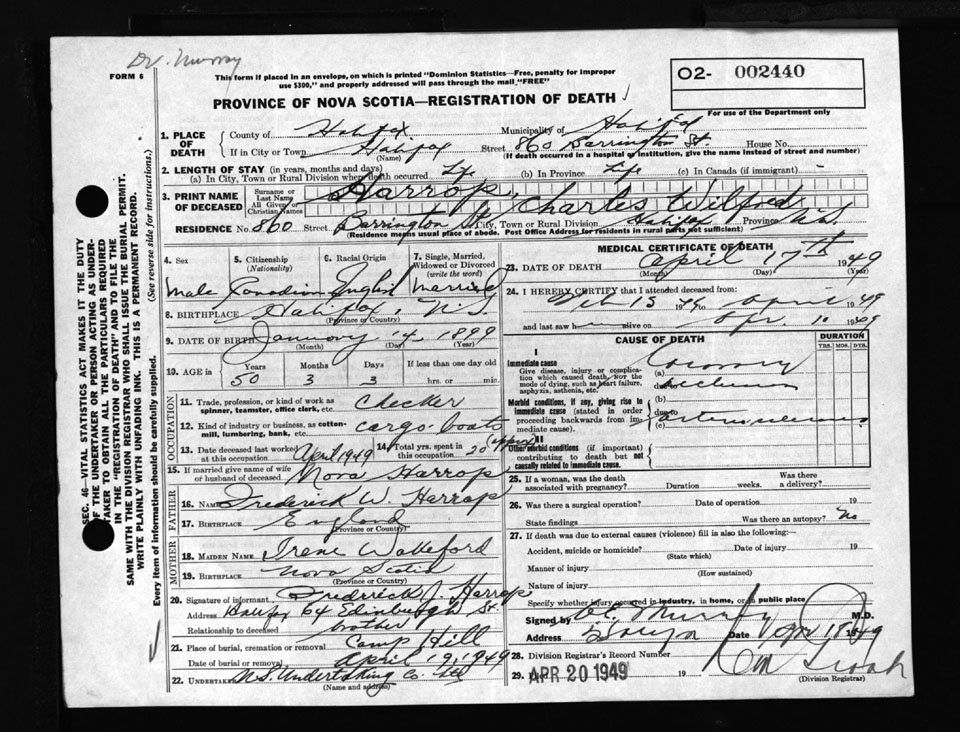 Dr. Murray
FORM 6
This form if placed in an envelope, on which is printed "Dominion Statistics—Free, penalty for improper
use $300," and properly addressed will pass through the mail "FREE"
O2- 002440
For use of the Department only
PROVINCE OF NOVA SCOTIA—REGISTRATION OF DEATH
1. PLACE OF DEATH
County of Halifax Municipality of Halifax
If in City or Town Halifax Street 860 Barrington St. House No.
(Name) (If death occurred in a hospital or institution, give the name instead of street and number)
2. LENGTH OF STAY (in years, months and days)
(a) In City, Town or Rural Division where death occurred Life (b) In Province Life (c) In Canada (if immigrant)
3. PRINT NAME OF DECEASED
Surname or Last Name Harrop
All Given or Christian Names Charles Wilfred
RESIDENCE No. 860 Street Barrington St City, Town or Rural Division Halifax Province N.S.
(Residence means usual place of abode. Post Office Address for residents in rural parts not sufficient)
4. Sex
5. Citizenship (Nationality)
6. Racial Origin
7. Single, Married, Widowed or Divorced (write the word)
Male Canadian English Married
8. BIRTHPLACE Halifax, N.S.
(Province or Country)
9. DATE OF BIRTH January 14 1899
(Month) (Day) (Year)
10. AGE in Years Months Days If less than one day old
50 3 3 hrs. or min.
OCCUPATION
11. Trade, profession, or kind of work as
spinner, teamster, office clerk, etc. Checker
12. Kind of industry or business, as cotton-
mill, lumbering, bank, etc. cargo boats
13. Date deceased last worked April 1949
14. Total yrs. spent in 20 (approx)
15. If married give name of wife
or husband of deceased Nora Harrop
FATHER
16. NAME Frederick W. Harrop
17. BIRTHPLACE England
(Province or Country)
MOTHER
18. MAIDEN NAME Irene
19. BIRTHPLACE Nova Scotia
(Province or Country)
20. Signature of informant Frederick J. Harrop
Address Halifax 64 Edinburgh St.
Relationship to deceased brother
21. Place of burial, cremation or removal Camp Hill
Date of burial or removal April 19, 1949
22. UNDERTAKER N.S. Undertaking Co. Ltd
(Name and address)
MEDICAL CERTIFICATE OF DEATH
23. DATE OF DEATH April 17th 1949
(Month) (Day) (Year)
24. I HEREBY CERTIFY that I attended deceased from:
Feb 15 1949 to April 1949
and last saw him alive on Apr. 10 1949
CAUSE OF DEATH
DURATION
YRS. MOS. DYS.
I
Immediate cause
Give disease, injury or complica-
tion which caused death, not the
mode of dying, such as heart failure,
asphyxia, asthenia, etc.
(a) Coronary
occlusion
Morbid conditions, if any, giving rise to
immediate cause (stated in order
proceeding backwards from im-
mediate cause).
(b)
due to
(c)
II
Other morbid conditions (if important)
contributing to death but not
causally related to immediate cause.
25. If a woman, was the death
associated with pregnancy? Duration weeks. Was there a delivery?
26. Was there a surgical operation? Date of operation 19
State findings Was there an autopsy? No
27. If death was due to external causes (violence) fill in also the following:
Accident, suicide or homicide? Date of injury 19
(State which)
Manner of injury
(How sustained)
Nature of injury
Specify whether injury occurred in industry, in home, or in public place
Signed by Murray M.D.
Address Date Apr 18 1949
28. Division Registrar's Record Number
29. APR 20 1949 19
(Division Registrar)
SEC. 46—VITAL STATISTICS ACT MAKES IT THE DUTY
OF THE UNDERTAKER OR PERSON ACTING AS UNDER-
TAKER TO OBTAIN ALL THE PARTICULARS REQUIRED
IN THE "REGISTRATION OF DEATH" AND TO FILE THE
SAME WITH THE DIVISION REGISTRAR WHO SHALL ISSUE THE BURIAL PERMIT.
WRITE PLAINLY WITH UNFADING INK. THIS IS A PERMANENT RECORD.
Every item of information should be carefully supplied. (See reverse side for instructions.)